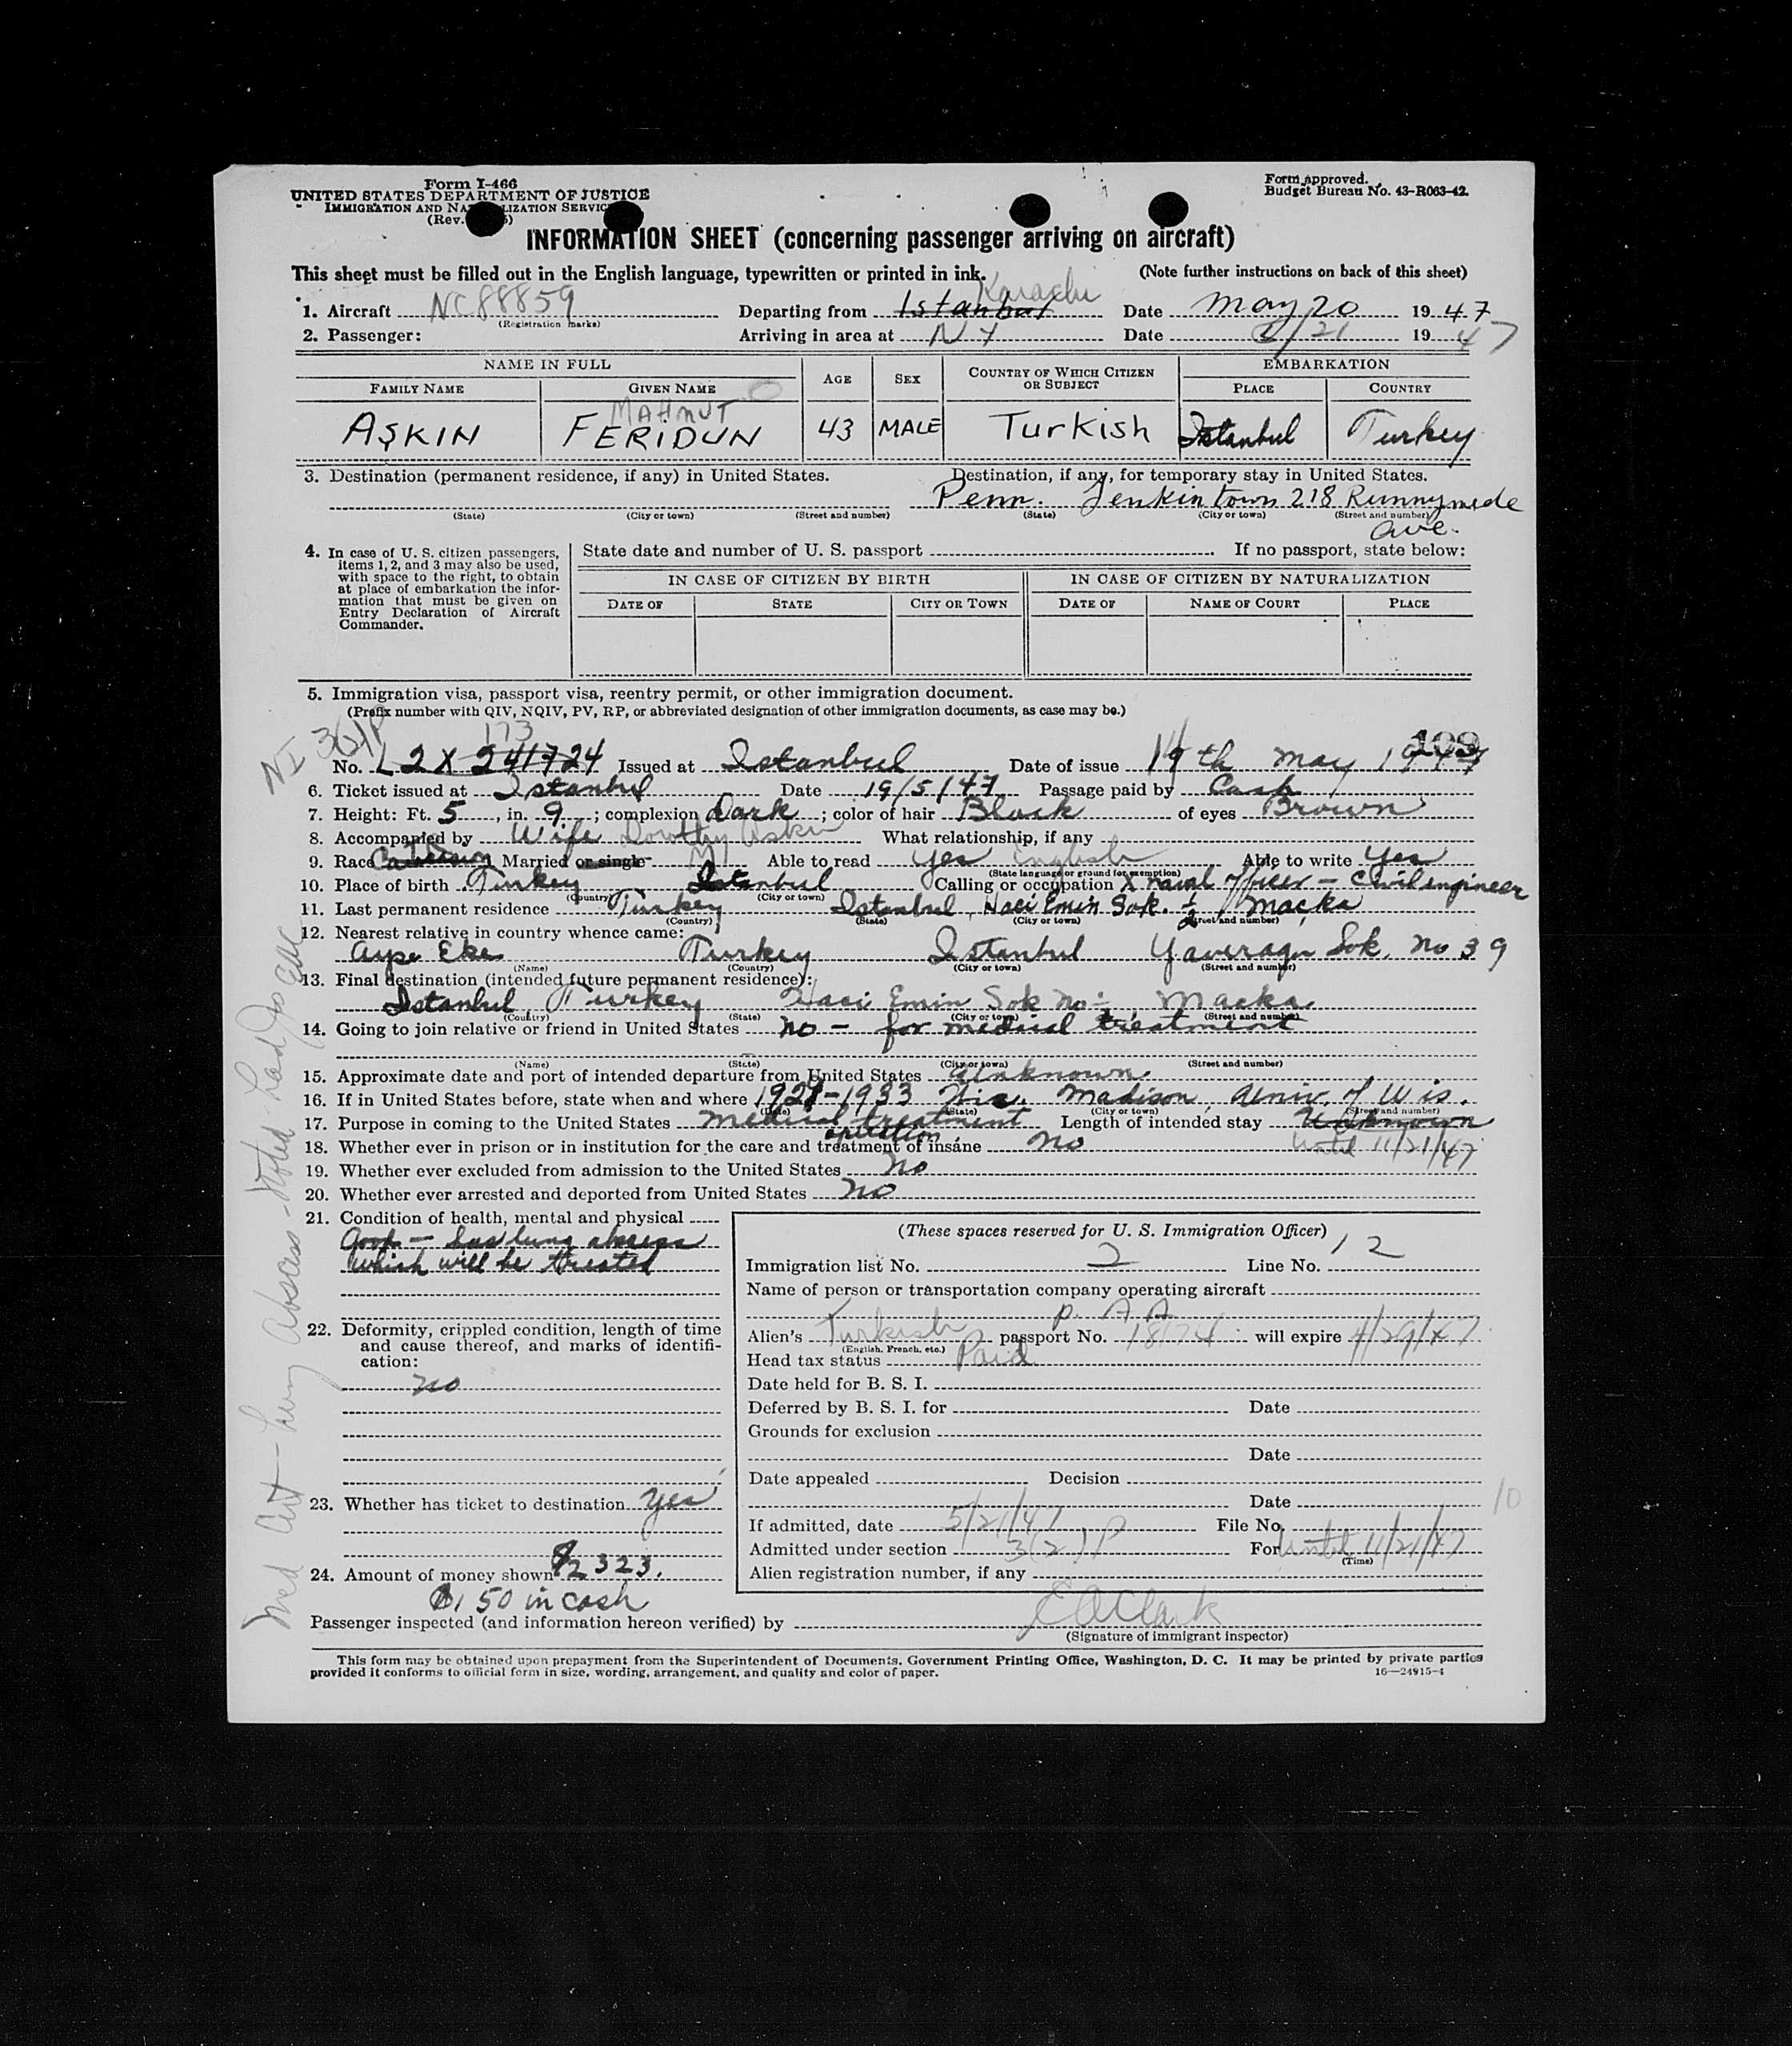 Form I-466
UNITED STATES DEPARTMENT OF JUSTICE
IMMIGRATION AND NATURALIZATION SERVICE
(Rev.
Form approved.
Budget Bureau No. 43-R063-42.
INFORMATION SHEET (concerning passenger arriving on aircraft)
This sheet must be filled out in the English language, typewritten or printed in ink.
(Note further instructions on back of this sheet)
Karachi
1. Aircraft NC88859 Departing from Istanbul Date May 20 1947
(Registration marks)
2. Passenger: Arriving in area at NY Date 5/21 1947
NAME IN FULL AGE SEX COUNTRY OF WHICH CITIZEN OR SUBJECT EMBARKATION
FAMILY NAME GIVEN NAME PLACE COUNTRY
MAHMUT
AŞKIN FERİDUN 43 MALE Turkish Istanbul Turkey
3. Destination (permanent residence, if any) in United States. Destination, if any, for temporary stay in United States.
Penn. Jenkintown 218 Runnymede
(State) (City or town) (Street and number) (State) (City or town) (Street and number)
Ave.
4. In case of U. S. citizen passengers, items 1, 2, and 3 may also be used, with space to the right, to obtain at place of embarkation the information that must be given on Entry Declaration of Aircraft Commander.
State date and number of U. S. passport If no passport, state below:
IN CASE OF CITIZEN BY BIRTH IN CASE OF CITIZEN BY NATURALIZATION
DATE OF STATE CITY OR TOWN DATE OF NAME OF COURT PLACE
5. Immigration visa, passport visa, reentry permit, or other immigration document.
(Prefix number with QIV, NQIV, PV, RP, or abbreviated designation of other immigration documents, as case may be.)
173
109
No. L2X 241724 Issued at Istanbul Date of issue 19th May 1947
6. Ticket issued at Istanbul Date 19/5/47 Passage paid by Cash
7. Height: Ft. 5, in. 9; complexion Dark; color of hair Black of eyes Brown
8. Accompanied by Wife Dorothy Askin What relationship, if any
9. Race Married or single M Able to read Yes English Able to write Yes
(State language or ground for exemption)
10. Place of birth Turkey Istanbul Calling or occupation X naval officer - Civil engineer
(Country) (City or town)
11. Last permanent residence Turkey Istanbul, Haci Emin Sok. 1/2 Maçka
(Country) (State) (City or town) (Street and number)
12. Nearest relative in country whence came:
Ayşe Eke Turkey Istanbul Yaveragu Sok. No 39
(Name) (Country) (City or town) (Street and number)
13. Final destination (intended future permanent residence):
Istanbul, Turkey Haci Emin Sok No Macka
(Country) (State) (City or town) (Street and number)
14. Going to join relative or friend in United States no - for medical treatment
(Name) (State) (City or town) (Street and number)
15. Approximate date and port of intended departure from United States Unknown.
16. If in United States before, state when and where 1929-1933 Wis. Madison, Univ. of Wis.
(Date) (State) (City or town) (Street and number)
17. Purpose in coming to the United States Medical treatment Length of intended stay Unknown
operation
18. Whether ever in prison or in institution for the care and treatment of insane No until 11/21/47
19. Whether ever excluded from admission to the United States No
20. Whether ever arrested and deported from United States No
21. Condition of health, mental and physical
Good - has lung abscess
which will be treated
22. Deformity, crippled condition, length of time and cause thereof, and marks of identification:
No
23. Whether has ticket to destination Yes
24. Amount of money shown $2323.
$150 in cash
(These spaces reserved for U. S. Immigration Officer)
Immigration list No. 2 Line No. 12
Name of person or transportation company operating aircraft
P. A A
Alien's Turkish passport No. 18174 will expire 4/29/47
(English, French, etc.)
Head tax status Paid
Date held for B. S. I.
Deferred by B. S. I. for Date
Grounds for exclusion
Date
Date appealed Decision
Date
10
If admitted, date 5/21/47 File No.
Admitted under section 3(2) For until 11/21/47
(Time)
Alien registration number, if any
Passenger inspected (and information hereon verified) by E A Clark
(Signature of immigrant inspector)
This form may be obtained upon prepayment from the Superintendent of Documents, Government Printing Office, Washington, D. C. It may be printed by private parties
provided it conforms to official form in size, wording, arrangement, and quality and color of paper.
16—24915-1
Med Cert - Lung Abscess - Noted